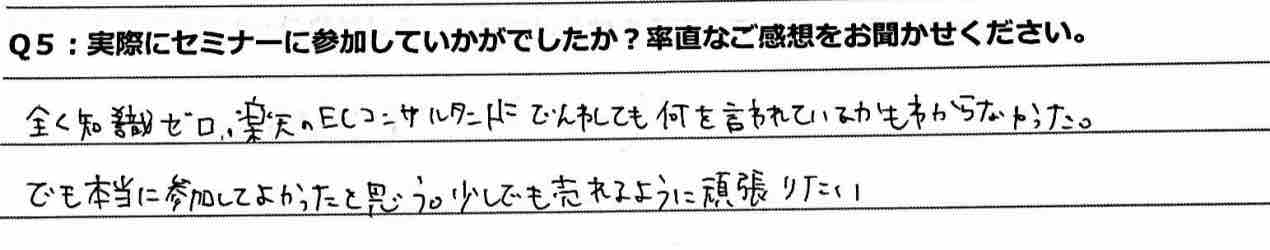 Q5：実際にセミナーに参加していかがでしたか？率直なご感想をお聞かせください。
全く知識ゼロ、楽天のECコンサルタントにでんわしても何を言われているかもわからなかった。
でも本当に参加してよかったと思う。少しでも売れるように頑張りたい